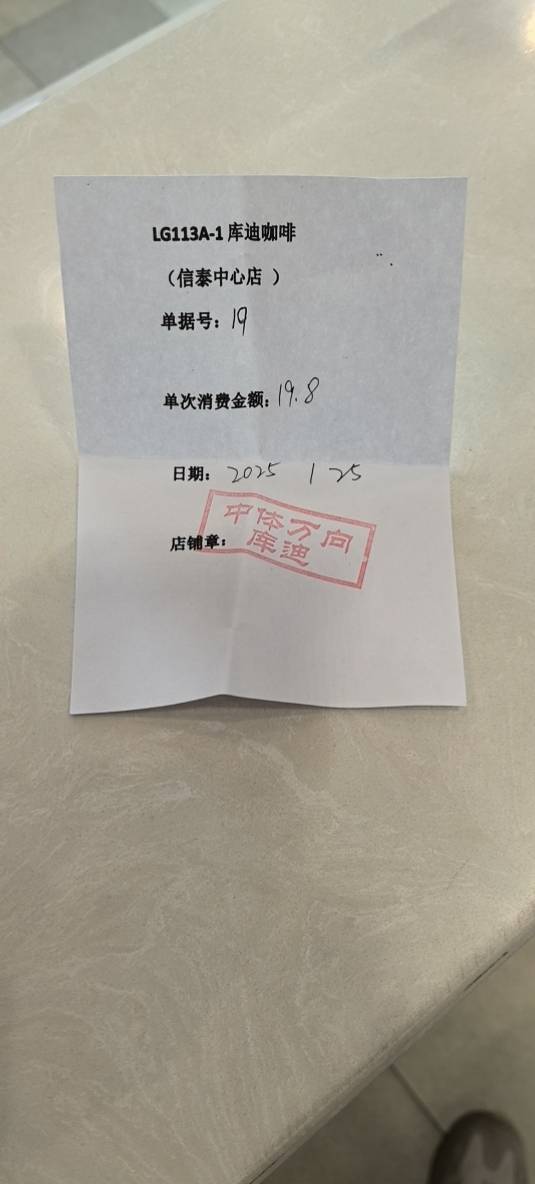 LG113A-1 库迪咖啡
（信泰中心店 ）
单据号：19
单次消费金额：19.8
日期：2025 1 25
店铺章：
中体万向
库迪